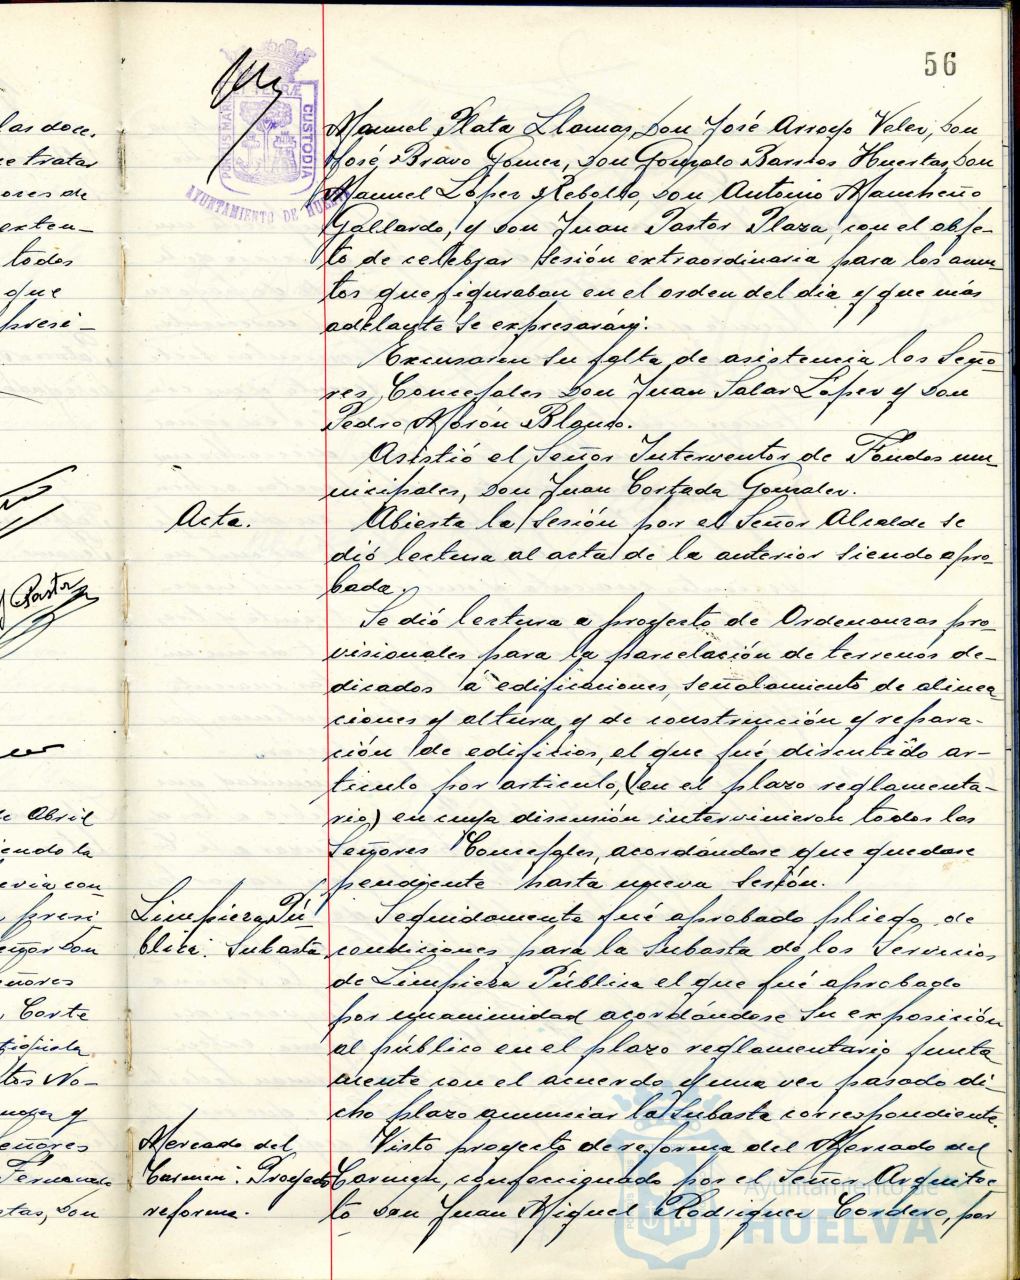 56
PORTUS MARIS ET TERRÆ CUSTODIA
AYUNTAMIENTO DE HUELVA
Manuel Plata Llamas, Don José Arroyo Velez, Don
José Bravo Gomez, Don Gonzalo Barrios Huertas, Don
Manuel López Rebollo, Don Antonio Mancheño
Gallardo, y Don Juan Pastor Plaza, con el obje-
to de celebrar Sesión extraordinaria para los asun-
tos que figuraban en el orden del dia y que más
adelante se expresarán.
Excusaron su falta de asistencia los Seño-
res Concejales Don Juan Salar López y Don
Pedro Morón Blanco.
Asistió el Señor Interventor de Fondos mu-
nicipales, Don Juan Cortada Gonzalez.
Acta.
Abierta la Sesión por el Señor Alcalde se
dió lectura al acta de la anterior siendo apro-
bada.
Se dió lectura a proyecto de Ordenanzas pro-
visionales para la parcelación de terrenos de-
dicados á edificaciones, señalamiento de alinea-
ciones y altura y de construcción y repara-
ción de edificios, el que fué discutido ar-
ticulo por articulo, (en el plazo reglamenta-
rio) en cuya discusión intervinieron todos los
Señores Concejales, acordándose que quedase
pendiente hasta nueva Sesión.
Limpieza Pú-
blica. Subasta
Seguidamente fué aprobado pliego de
condiciones para la Subasta de los Servicios
de Limpieza Pública el que fué aprobado
por unanimidad acordándose su exposición
al público en el plazo reglamentario junta-
mente con el acuerdo y una vez pasado di-
cho plazo anunciar la Subasta correspondiente.
Mercado del
Carmen: Proyecto
reforma.
Visto proyecto de reforma del Mercado del
Carmen, confeccionado por el Señor Arquitec-
to Don Juan Miguel Rodriguez Cordero, por
las doce.
tratar
ores de
exten-
todos
que
presi-
Pastor
Abril
endo la
con-
presi
Don
ñores
Corte
No-
y
Señores
Fernando
Don
Ayuntamiento de
HUELVA